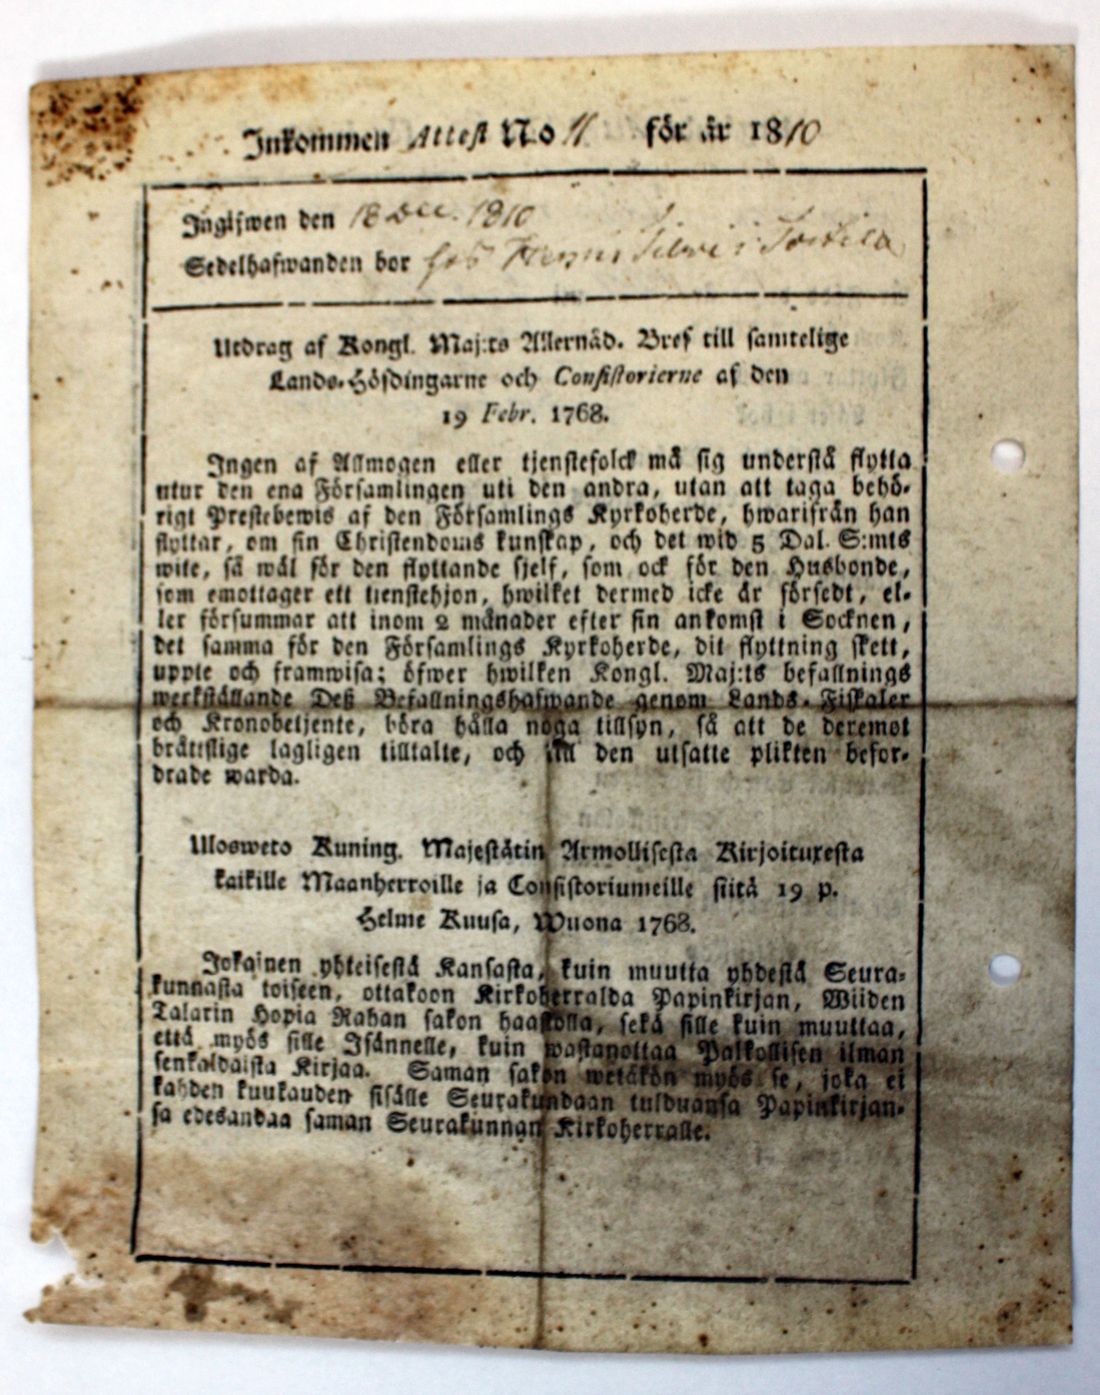 Inkommen Attest No 11 för år 1810
Ingifwen den 18 Dec. 1810
Sedelhafwanden bor hos i
Utdrag af Kongl. Maj:ts Allernåd. Bref till samtelige
Lands-Höfdingarne och Consistorierne af den
19 Febr. 1768.
Ingen af Allmogen eller tjenstefolck må sig understå flytta
utur den ena Församlingen uti den andra, utan att taga behö-
rigt Prestebewis af den Församlings Kyrkoherde, hwarifrån han
flyttar, om sin Christendoms kunskap, och det wid 5 Dal. S:mts
wite, så wäl för den flyttande sjelf, som ock för den Husbonde,
som emottager ett tienstehjon, hwilket dermed icke är försedt, el-
ler försummar att inom 2 månader efter sin ankomst i Socknen,
det samma för den Församlings Kyrkoherde, dit flyttning skett,
uppte och framwisa; öfwer hwilken Kongl. Maj:ts befallnings
werkställande Deß Befallningshafwande genom Lands-Fiskaler
och Kronobetjente, böra hålla noga tillsyn, så att de deremot
bråttslige lagligen tilltalte, och till den utsatte plikten befor-
drade warda.
Ulosweto Kuning. Majestätin Armollisesta Kirjoituxesta
kaikille Maanherroille ja Consistoriumeille siitä 19 p.
Helme Kuusa, Wuona 1768.
Jokainen yhteisestä Kansasta, kuin muutta yhdestä Seura-
kunnasta toiseen, ottakoon Kirkoherralda Papinkirjan, Wiiden
Talarin Hopia Rahan sakon haastolla, sekä sille kuin muuttaa,
että myös sille Isännelle, kuin wastanottaa Palkollisen ilman
senkaldaista Kirjaa. Saman sakon wetäkön myös se, joka ei
kahden kuukauden sisälle Seurakundaan tulduansa Papinkirjan-
sa edesandaa saman Seurakunnan Kirkoherralle.